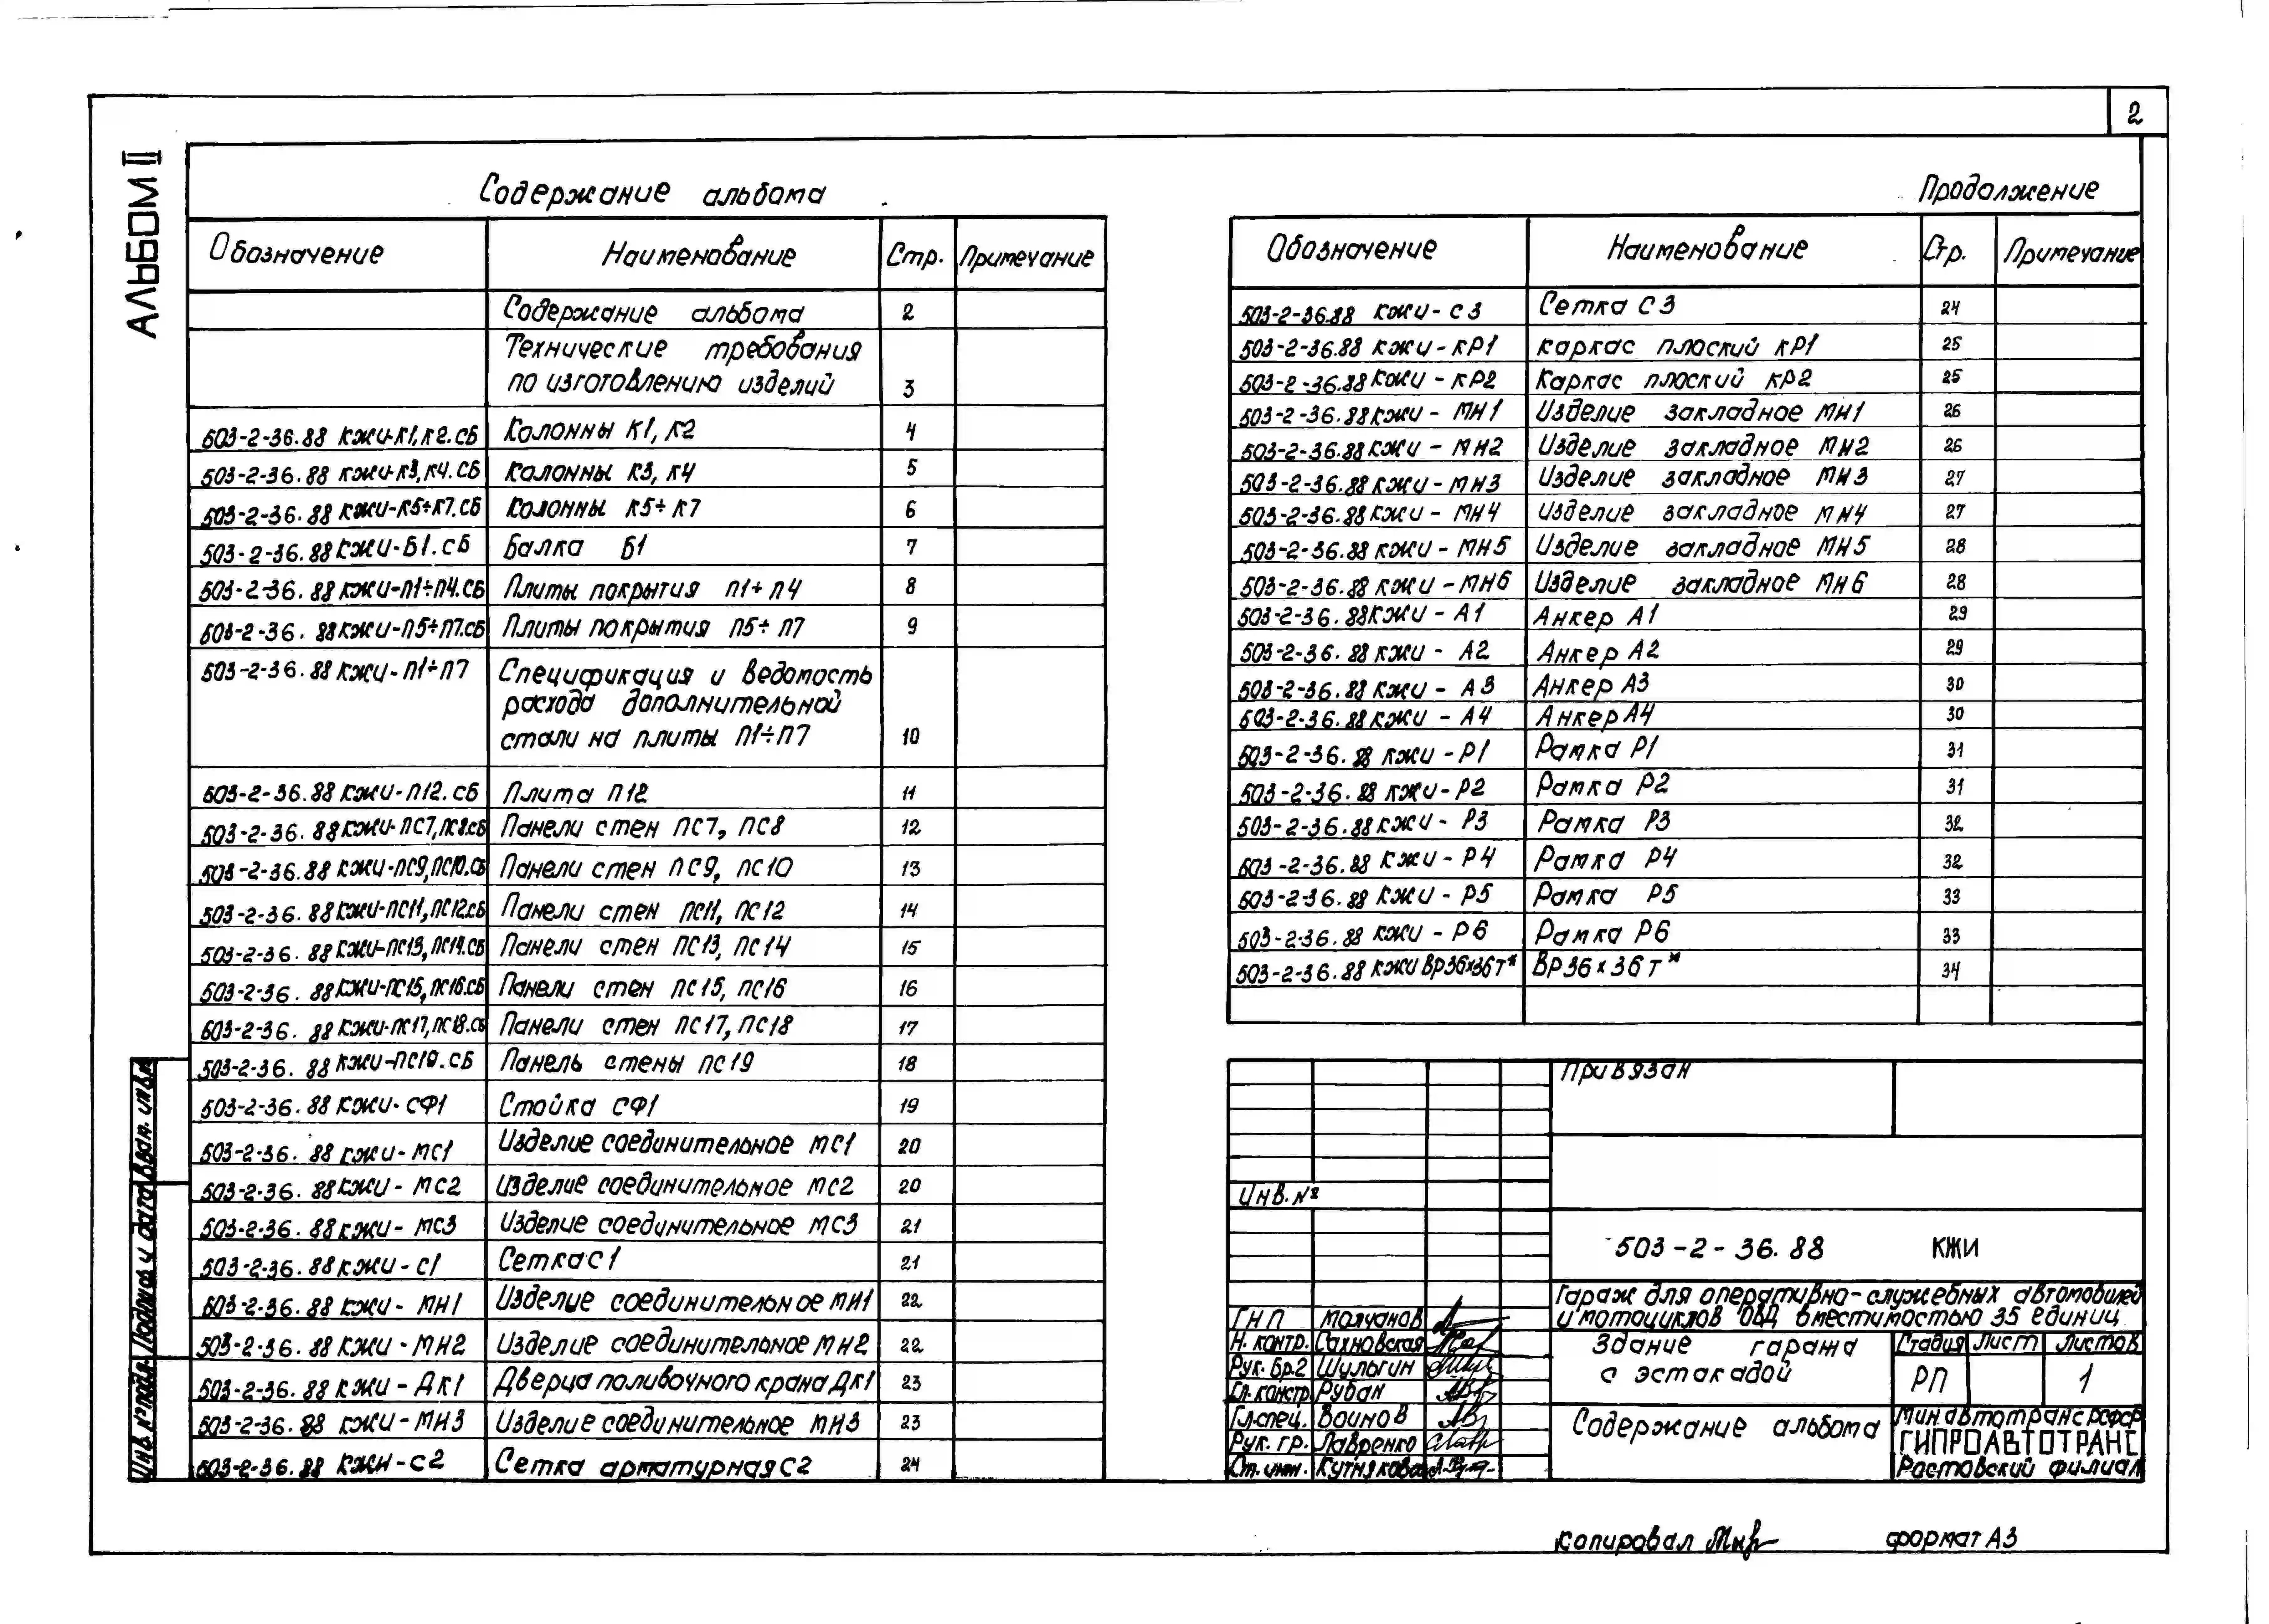 2
АЛЬБОМ II
Содержание альбома
Обозначение Наименование Стр. Примечание
Содержание альбома 2
Технические требования
по изготовлению изделий 3
503-2-36.88 КЖИ-К1,К2.СБ Колонны К1, К2 4
503-2-36.88 КЖИ-К3,К4.СБ Колонны К3, К4 5
503-2-36.88 КЖИ-К5÷К7.СБ Колонны К5÷К7 6
503-2-36.88 КЖИ-Б1.СБ Балка Б1 7
503-2-36.88 КЖИ-П1÷П4.СБ Плиты покрытия П1÷П4 8
503-2-36.88 КЖИ-П5÷П7.СБ Плиты покрытия П5÷П7 9
503-2-36.88 КЖИ-П1÷П7 Спецификация и ведомость
расхода дополнительной
стали на плиты П1÷П7 10
503-2-36.88 КЖИ-П12.СБ Плита П12 11
503-2-36.88 КЖИ-ПС7,ПС8.СБ Панели стен ПС7, ПС8 12
503-2-36.88 КЖИ-ПС9,ПС10.СБ Панели стен ПС9, ПС10 13
503-2-36.88 КЖИ-ПС11,ПС12.СБ Панели стен ПС11, ПС12 14
503-2-36.88 КЖИ-ПС13,ПС14.СБ Панели стен ПС13, ПС14 15
503-2-36.88 КЖИ-ПС15,ПС16.СБ Панели стен ПС15, ПС16 16
503-2-36.88 КЖИ-ПС17,ПС18.СБ Панели стен ПС17, ПС18 17
503-2-36.88 КЖИ-ПС19.СБ Панель стены ПС19 18
503-2-36.88 КЖИ-СФ1 Стойка СФ1 19
503-2-36.88 КЖИ-МС1 Изделие соединительное МС1 20
503-2-36.88 КЖИ-МС2 Изделие соединительное МС2 20
503-2-36.88 КЖИ-МС3 Изделие соединительное МС3 21
503-2-36.88 КЖИ-С1 Сетка С1 21
503-2-36.88 КЖИ-МН1 Изделие соединительное МН1 22
503-2-36.88 КЖИ-МН2 Изделие соединительное МН2 22
503-2-36.88 КЖИ-ДК1 Дверца поливочного крана ДК1 23
503-2-36.88 КЖИ-МН3 Изделие соединительное МН3 23
503-2-36.88 КЖИ-С2 Сетка арматурная С2 24
Продолжение
Обозначение Наименование Стр. Примечание
503-2-36.88 КЖИ-С3 Сетка С3 24
503-2-36.88 КЖИ-КР1 Каркас плоский КР1 25
503-2-36.88 КЖИ-КР2 Каркас плоский КР2 25
503-2-36.88 КЖИ-МН1 Изделие закладное МН1 26
503-2-36.88 КЖИ-МН2 Изделие закладное МН2 26
503-2-36.88 КЖИ-МН3 Изделие закладное МН3 27
503-2-36.88 КЖИ-МН4 Изделие закладное МН4 27
503-2-36.88 КЖИ-МН5 Изделие закладное МН5 28
503-2-36.88 КЖИ-МН6 Изделие закладное МН6 28
503-2-36.88 КЖИ-А1 Анкер А1 29
503-2-36.88 КЖИ-А2 Анкер А2 29
503-2-36.88 КЖИ-А3 Анкер А3 30
503-2-36.88 КЖИ-А4 Анкер А4 30
503-2-36.88 КЖИ-Р1 Рамка Р1 31
503-2-36.88 КЖИ-Р2 Рамка Р2 31
503-2-36.88 КЖИ-Р3 Рамка Р3 32
503-2-36.88 КЖИ-Р4 Рамка Р4 32
503-2-36.88 КЖИ-Р5 Рамка Р5 33
503-2-36.88 КЖИ-Р6 Рамка Р6 33
503-2-36.88 КЖИ ВР36×36т* ВР36×36т* 34
Привязан
Инв. №
503-2-36.88 КЖИ
Гараж для оперативно-служебных автомобилей
и мотоциклов ОВД вместимостью 35 единиц
ГНП Молчанов
Н. контр. Сахновская
Рук. бр.2 Шульгин
Гл. констр. Рубан
Гл. спец. Воинов
Рук. гр. Лавренко
Ст. инж. Кутнякова
Здание гаража
с эстакадой
Стадия Лист Листов
РП 1
Содержание альбома
Минавтотранс РСФСР
ГИПРОАВТОТРАНС
Ростовский филиал
Инв. № подл. Подпись и дата Взам. инв. №
Копировал
формат А3